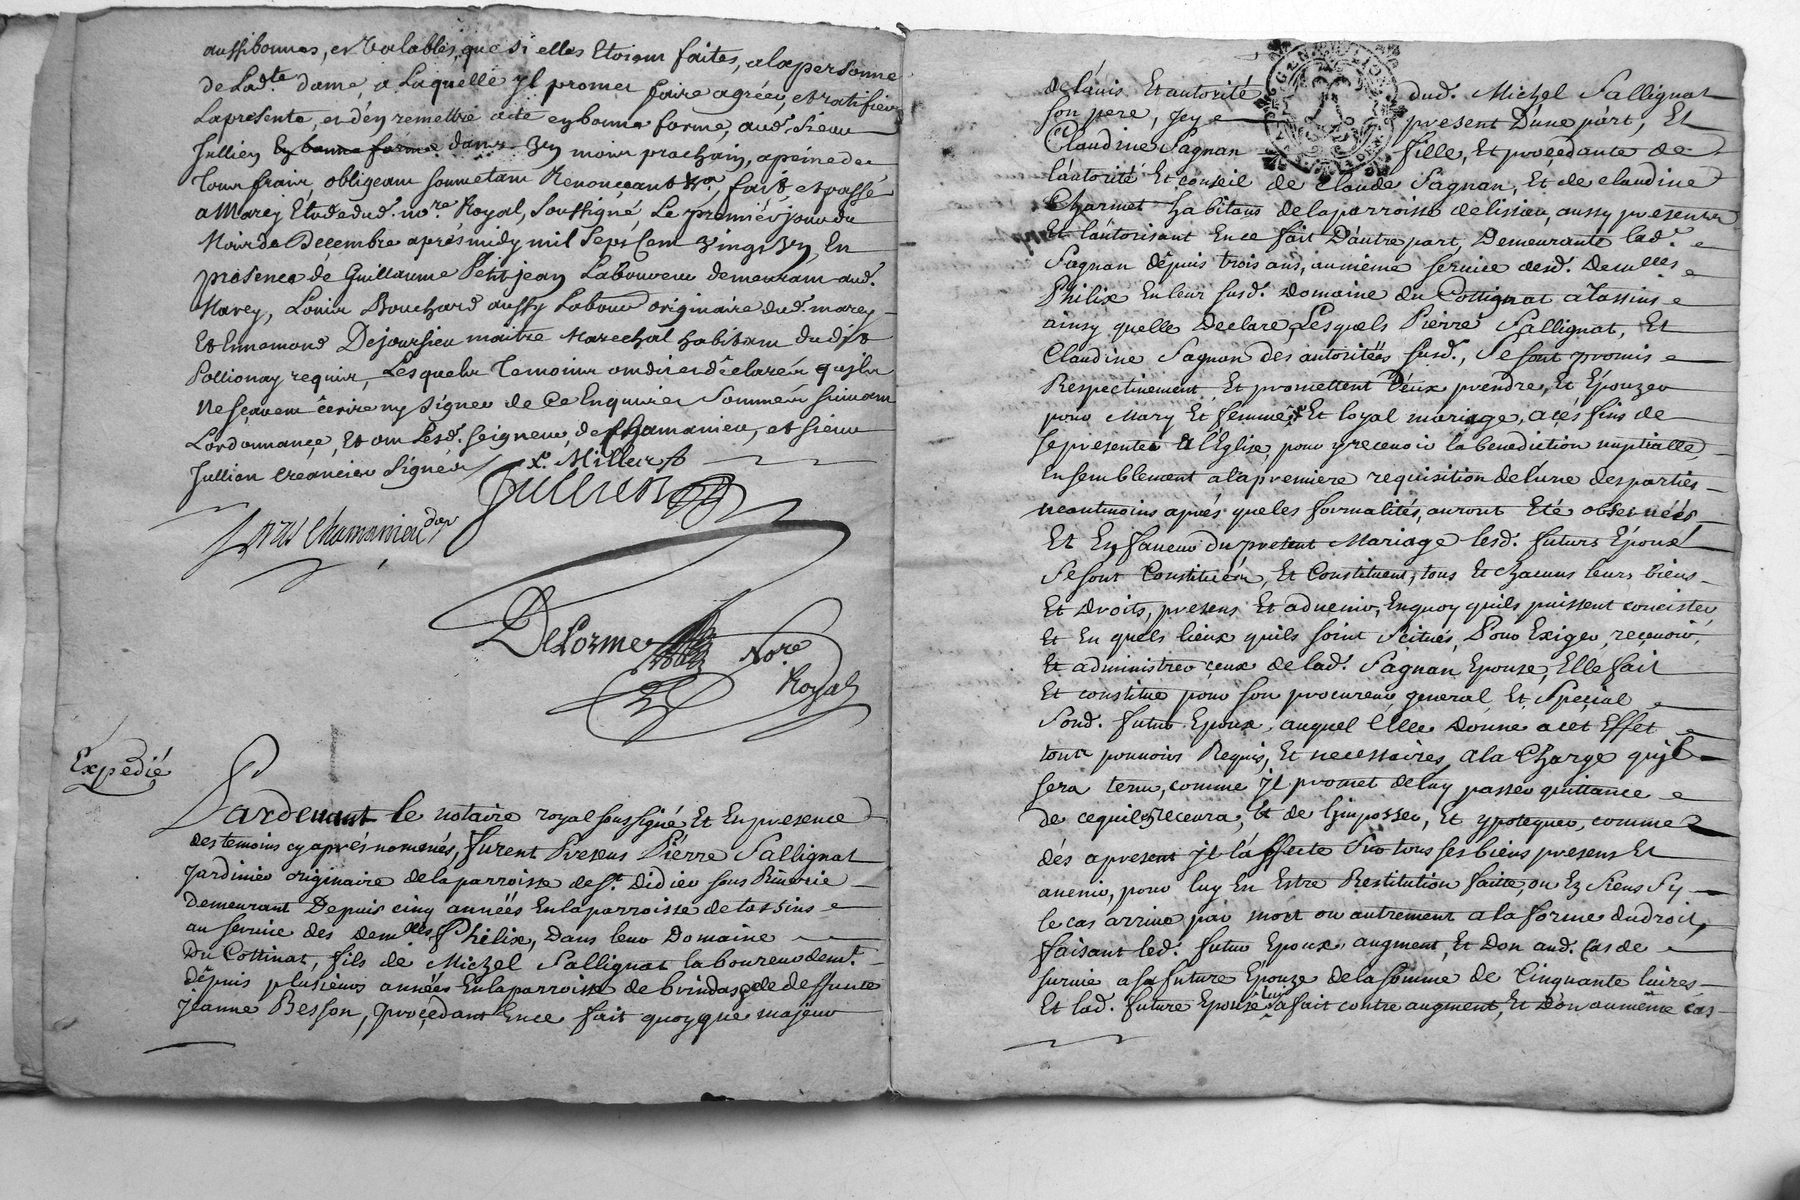 aussi bonnes, et valables, que si elles Etoient faites, a la personne
de Lad.te dame, a Laquelle jl promet faire agréer et ratifier
La presente, et d'en remettre acte en bonne forme, aud. Sieur
Jullien en bonne forme dans un mois prochain, a peine de
tous frais, obligeant soumetant Renonçeant &a, fait et passé
a Marcy Etude dud. no.re Royal, Soussigné, Le premier jour du
Mois de Décembre aprés midy, mil Sept Cent vingt un, En
presence de Guillaume Petitjean Laboureur demeurant aud.
Marcy, Louis Bouchard aussy Labour originaire dud. marcy
Et Ennemond Dejoursieu maitre Marechal habitant dudit
Pollionay requis, Lesquels Temoins ont dit et déclaré qu'jls
ne sçavent écrire ny signer de Ce Enquis et Sommés suivant
Lordonnançe, Et ont Lesd. Seigneur de Chamanieu, et sieur
Jullien creancier Signés
Jullien
Loras Chamanieu
DeLorme No.re
Royal
Expedié
Pardevant le notaire royal soussigné Et En presence
des temoins cy aprés nommés, furent Presens Pierre Sallignat
Jardinier originaire de la parroisse de St. Didier sous Riverie
demeurant Depuis cinq années En la parroisse de tassins
au service des Dem.lles Philix, Dans leur Domaine
Du Cottinat, fils de Michel Sallignat laboureur dem.t
depuis plusieurs années En la parroisse de brindas, & de deffunte
Jeanne Besson, proçedant En ce fait quoy que majeur
de l'avis Et autorité dud. Michel Sallignat
son pere, Jcy present D'une part, Et
Claudine Sagnan fille, Et proçedante de
l'autorité Et conseil de Claude Sagnan, Et de claudine
Charmet habitans de la parroisse de lissieu, aussy presents
Et l'autorisant En ce fait D'autre part, Demeurante lad.
Sagnan depuis trois ans, au même service desd. Dem.lles
Philix En leur susd. Domaine du Cottignat a Tassins
ainsy quelle Declare, Lesquels Pierre Sallignat, Et
Claudine Sagnan des autoritées susd., Se sont promis
Respectivement Et promettent D'eux prendre, Et Epouzer
pour Mary Et femme, Et loyal mariage, a çes fins de
se presenter a l'Eglise, pour y recevoir la benediction nuptialle
Ensemblement a la premiere requisition de l'une des parties
neantmoins aprés que les formalités, auront Eté observées,
Et En faveur du present Mariage lesd. futurs Epoux
Se sont Constitués, Et Constituent, tous Et chacuns leurs biens
Et Droits, presens Et advenir, En quoy qu'ils puissent concister
Et En quels lieux qu'ils soint Scitués, Pour Exiger, reçevoir,
Et administrer çeux de lad. Sagnan Epouse, Elle fait
Et constitue pour son procureur general Et Speçial
Sond. futur Epoux, auquel Elle Donne a cet Effet
tous pouvoirs Requis, Et necessaires, a la Charge qu'jl
sera tenu, comme jl promet de luy passer quittance
de ce qu'il recevra, Et de l'imposser, Et ypotequer, comme
dés apresent jl l'affecte Sur tous ses biens presens Et
avenir, pour luy En Estre Restitution faitte, ou Ez Siens Sy
le cas arrive par mort ou autrement a la forme du droit,
faisant led. futur Epoux augment, Et Don aud. Cas de
survie a sa future Epouze de la somme de Cinquante livres
Et lad. future Epouse luy a fait contre augment, Et Don au même Cas